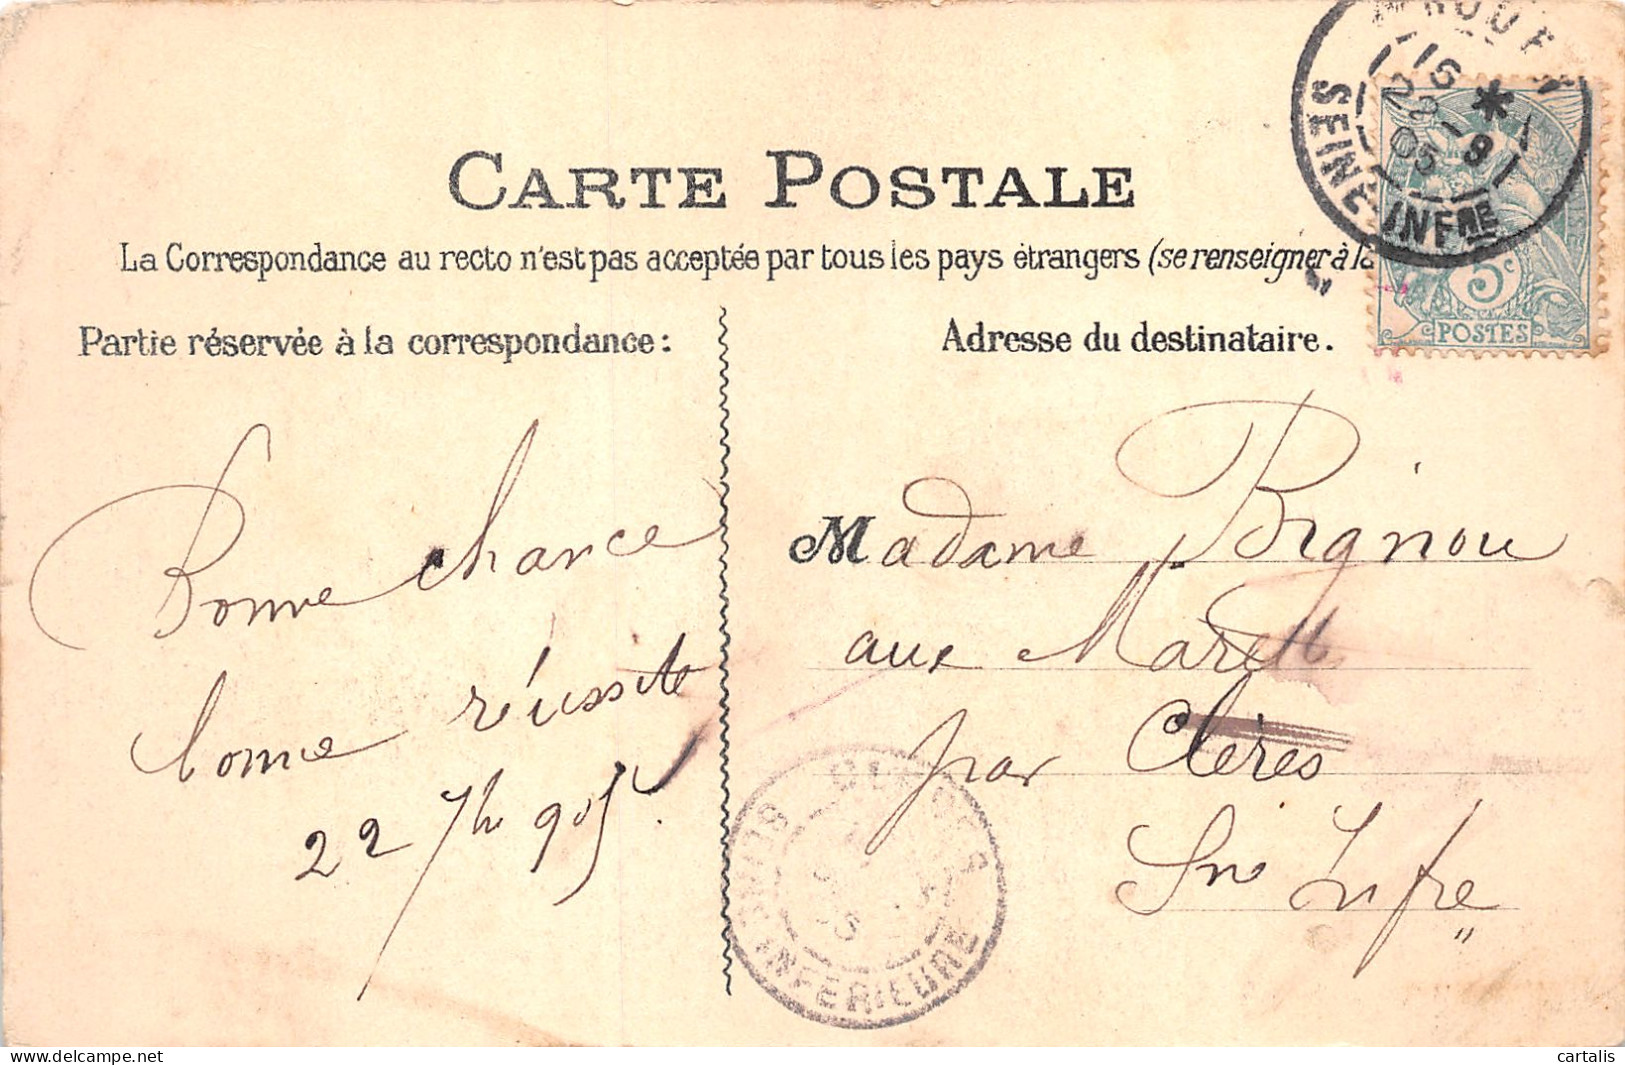 CARTE POSTALE
La Correspondance au recto n'est pas acceptée par tous les pays étrangers (se renseigner à la
Partie réservée à la correspondance :
Adresse du destinataire.
ROUEN
16 *
22 9
05
SEINE INFRE
5c
POSTES
Bonne chance
bonne réussite
22 7bre 905
Madame Bignou
aux
par Clères
Sne Infre
SEINE INFERIEURE
cartalis